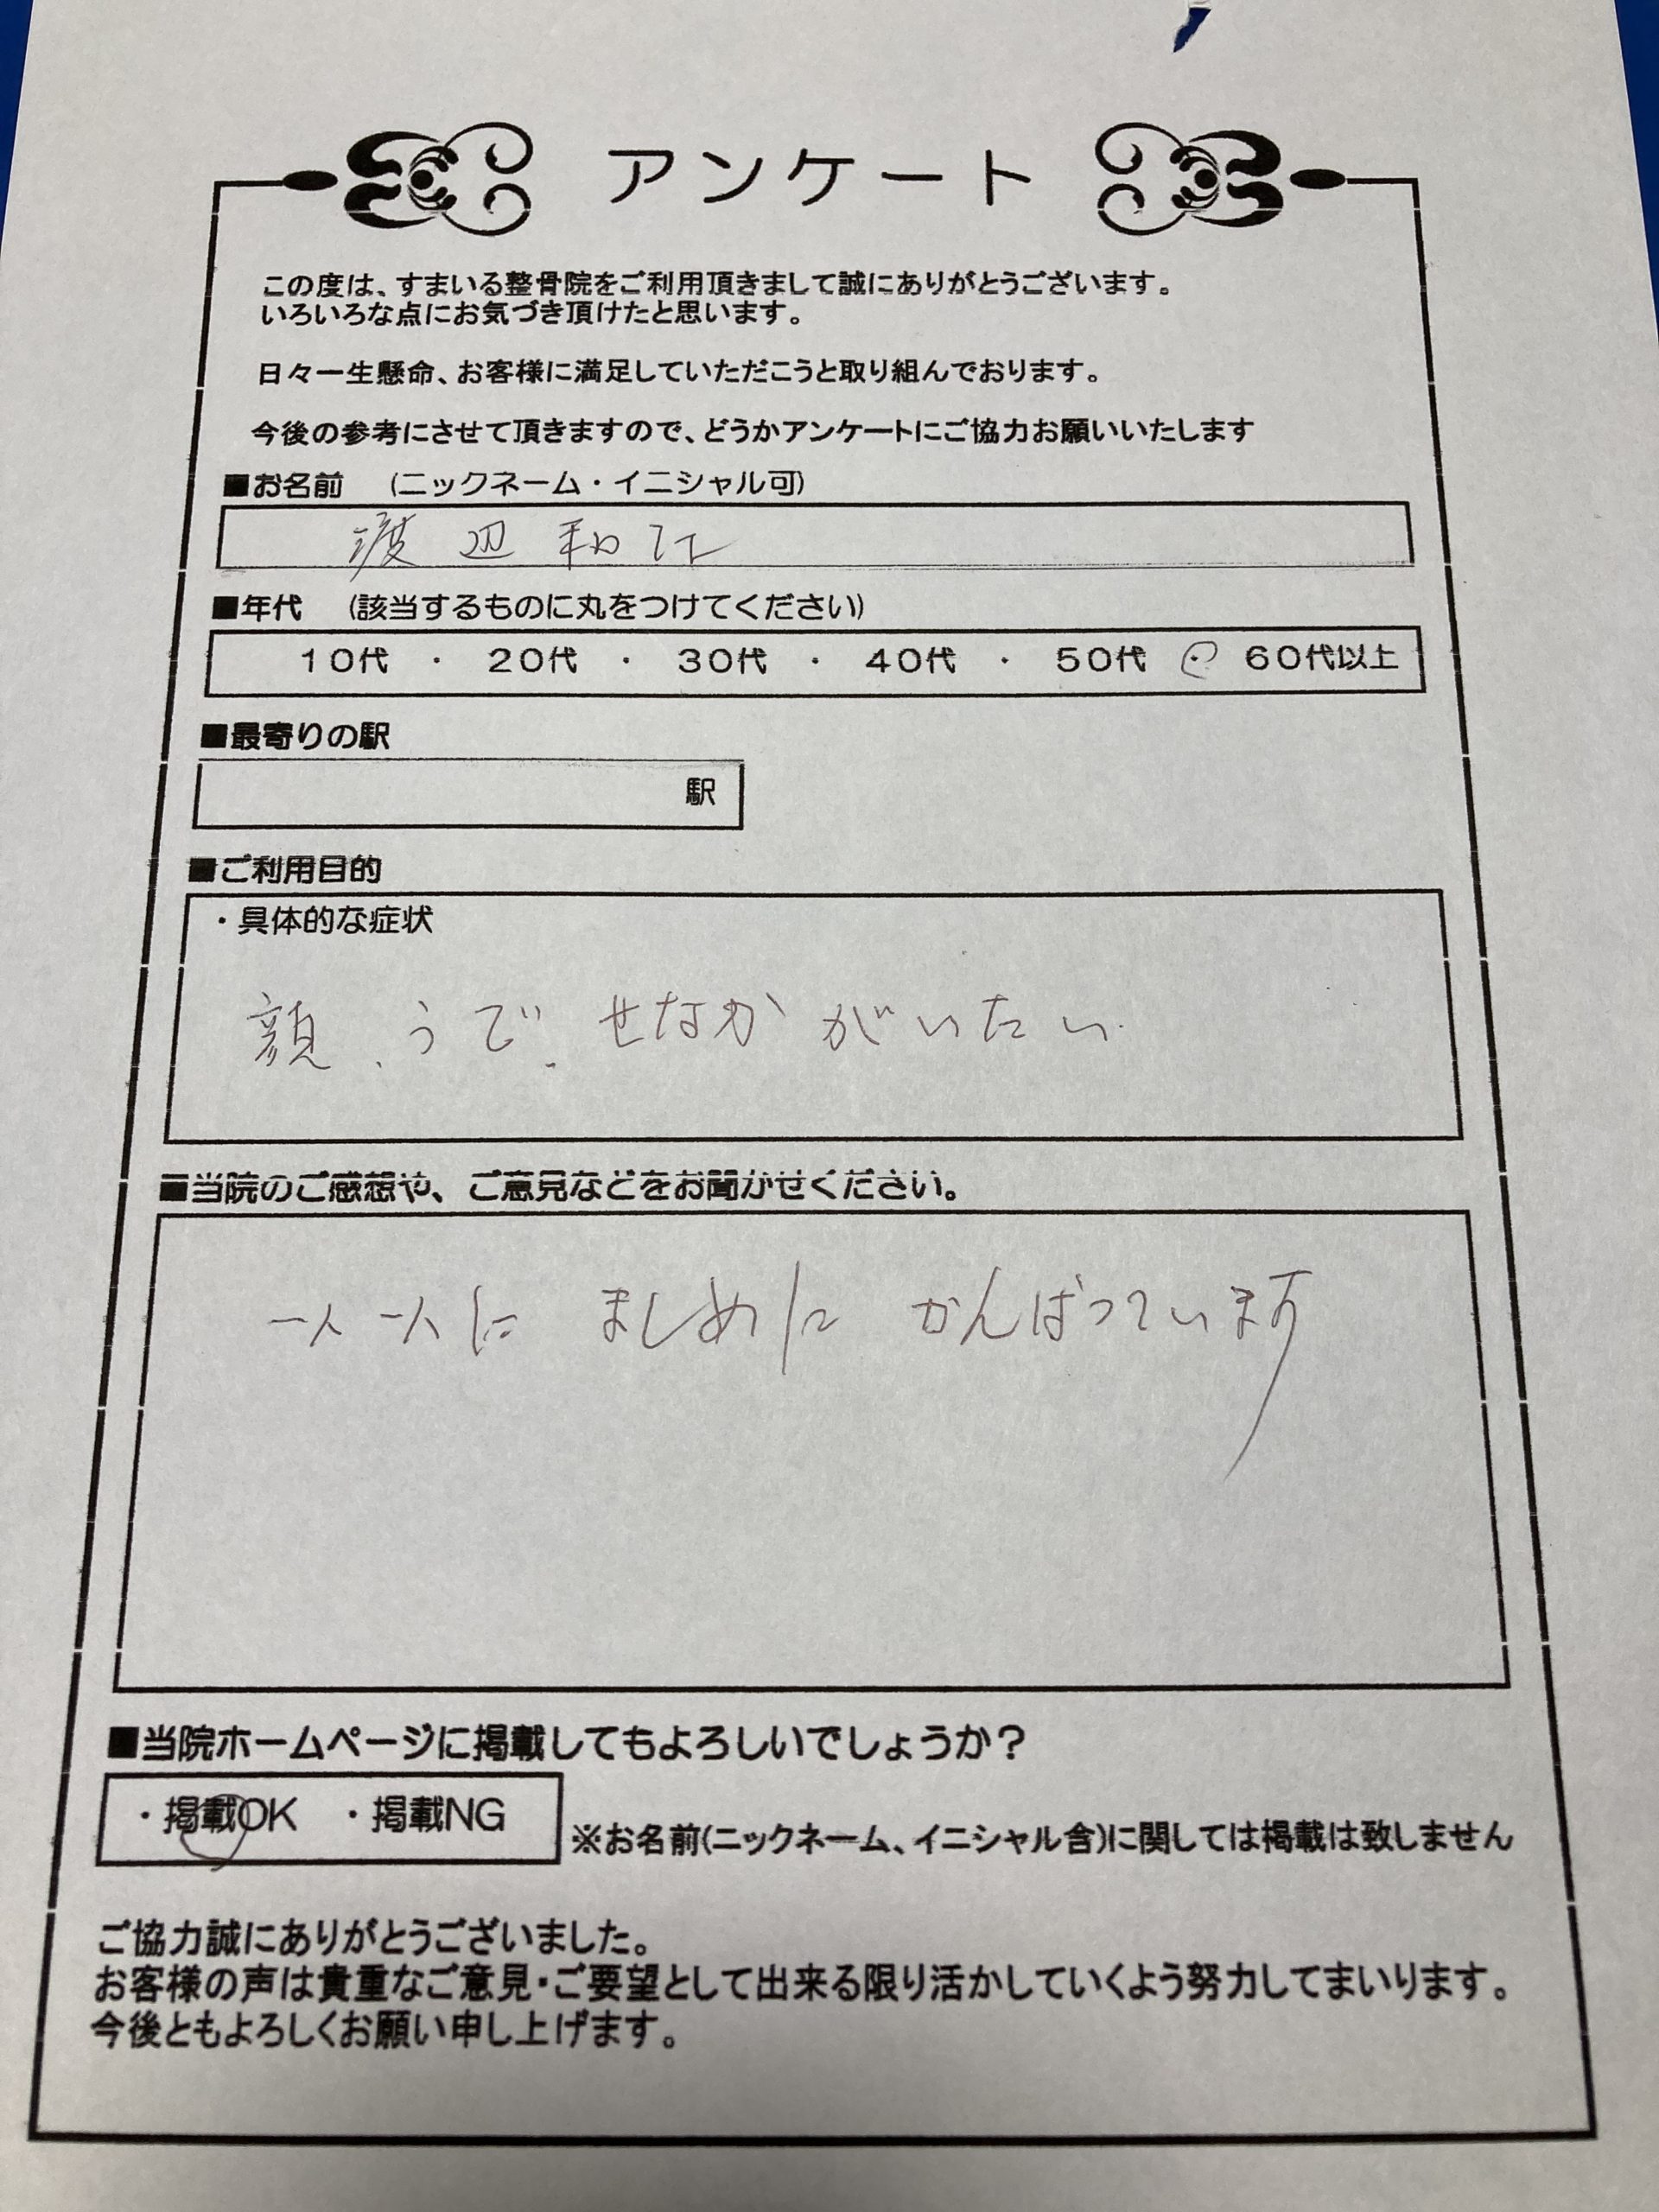 アンケート
この度は、すまいる整骨院をご利用頂きまして誠にありがとうございます。
いろいろな点にお気づき頂けたと思います。
日々一生懸命、お客様に満足していただこうと取り組んでおります。
今後の参考にさせて頂きますので、どうかアンケートにご協力お願いいたします
■お名前　(ニックネーム・イニシャル可)
渡辺和
■年代　(該当するものに丸をつけてください)
10代 ・ 20代 ・ 30代 ・ 40代 ・ 50代 ・ 60代以上
■最寄りの駅
駅
■ご利用目的
・具体的な症状
顔、うで、せなかがいたい
■当院のご感想や、ご意見などをお聞かせください。
一人一人に ましめに かんばっています
■当院ホームページに掲載してもよろしいでしょうか？
・掲載OK　・掲載NG
※お名前(ニックネーム、イニシャル含)に関しては掲載は致しません
ご協力誠にありがとうございました。
お客様の声は貴重なご意見・ご要望として出来る限り活かしていくよう努力してまいります。
今後ともよろしくお願い申し上げます。